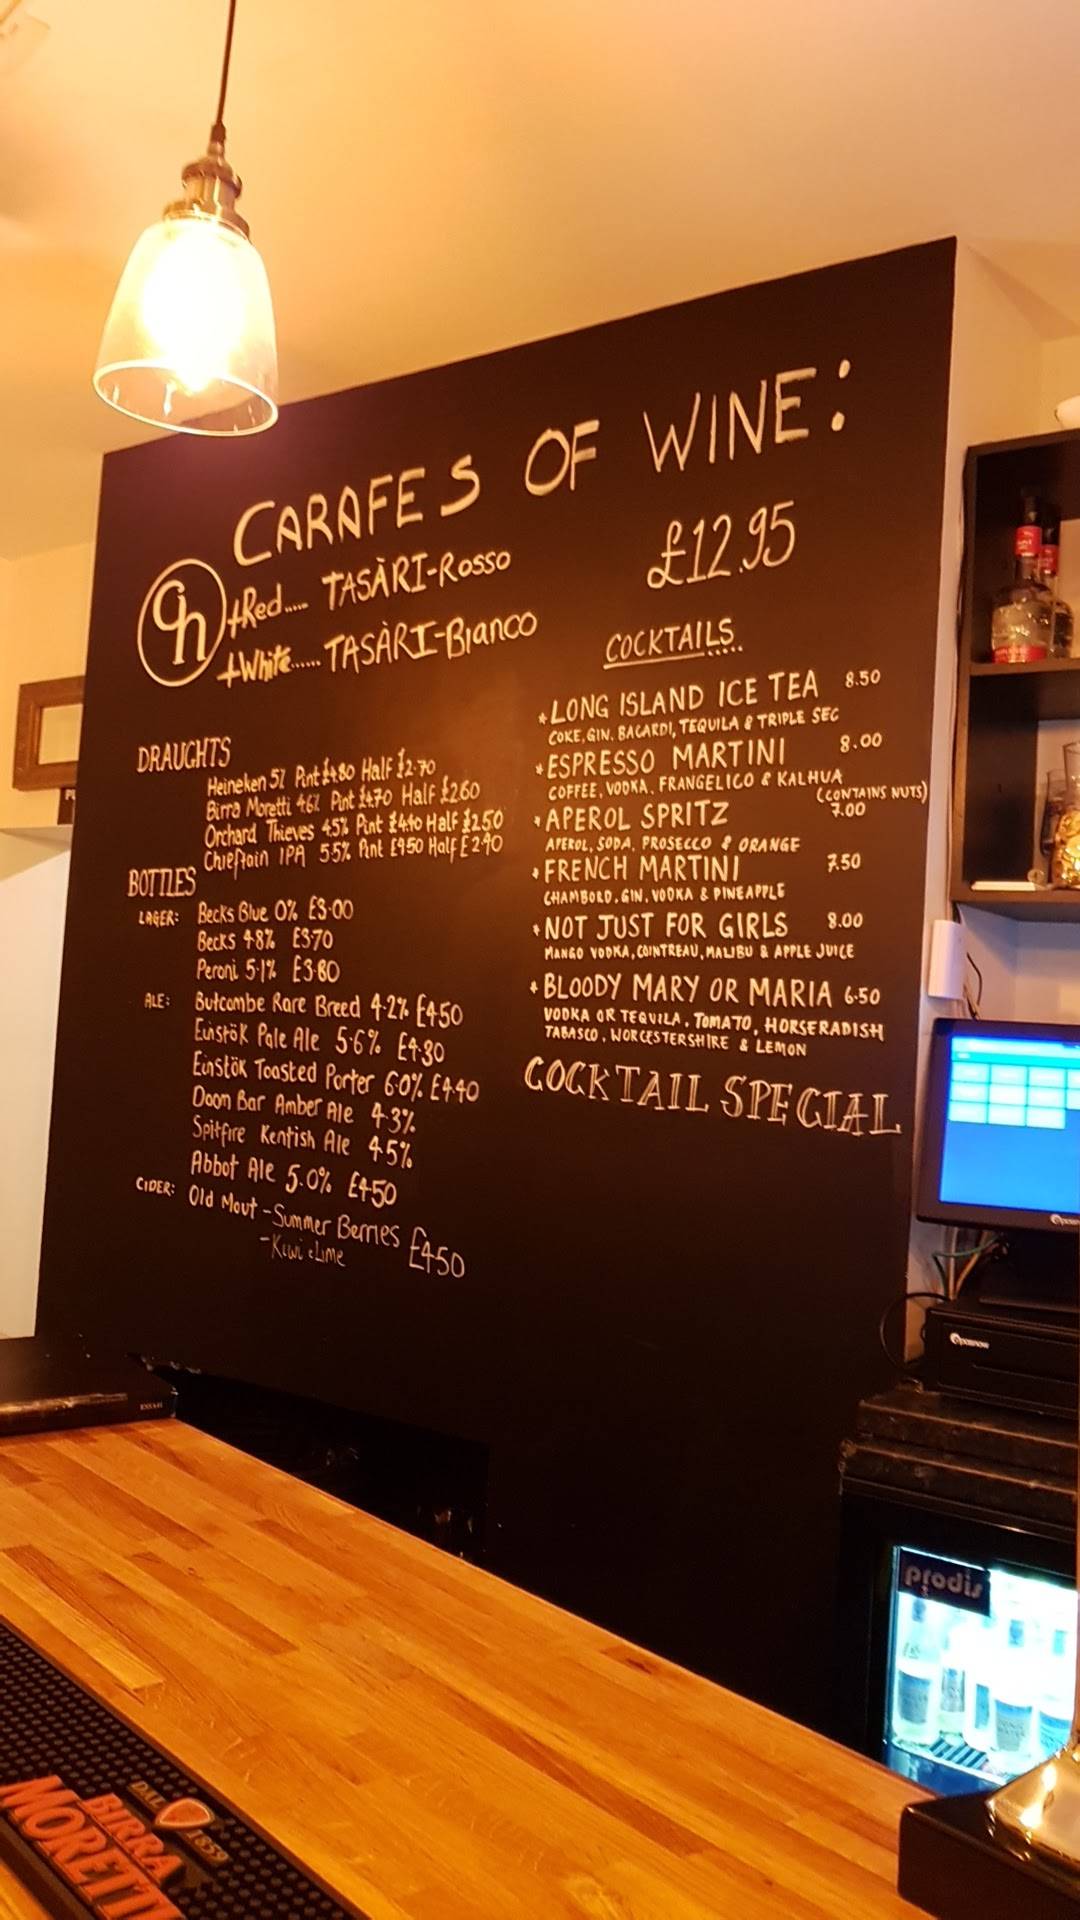 CARAFES OF WINE:
Gh
+Red..... TASÀRI-Rosso
+White...... TASÀRI-Bianco
£12.95
DRAUGHTS
Heineken 5% Pint £4.80 Half £2.70
Birra Moretti 4.6% Pint £4.70 Half £2.60
Orchard Thieves 4.5% Pint £4.40 Half £2.50
Chieftain IPA 5.5% Pint £4.50 Half £2.90
BOTTLES
LAGER: Becks Blue 0% £3.00
Becks 4.8% £3.70
Peroni 5.1% £3.80
ALE: Butcombe Rare Breed 4.2% £4.50
Einstök Pale Ale 5.6% £4.30
Einstök Toasted Porter 6.0% £4.40
Doom Bar Amber Ale 4.3%
Spitfire Kentish Ale 4.5%
Abbot Ale 5.0% £4.50
CIDER: Old Mout - Summer Berries £4.50
- Kiwi & Lime
COCKTAILS
*LONG ISLAND ICE TEA 8.50
COKE, GIN, BACARDI, TEQUILA & TRIPLE SEC
*ESPRESSO MARTINI 8.00
COFFEE, VODKA, FRANGELICO & KALHUA
(CONTAINS NUTS)
*APEROL SPRITZ 7.00
APEROL, SODA, PROSECCO & ORANGE
*FRENCH MARTINI 7.50
CHAMBORD, GIN, VODKA & PINEAPPLE
*NOT JUST FOR GIRLS 8.00
MANGO VODKA, COINTREAU, MALIBU & APPLE JUICE
*BLOODY MARY OR MARIA 6.50
VODKA OR TEQUILA, TOMATO, HORSERADISH
TABASCO, WORCESTERSHIRE & LEMON
COCKTAIL SPECIAL
prodis
DAL 1859
BIRRA
MORETTI